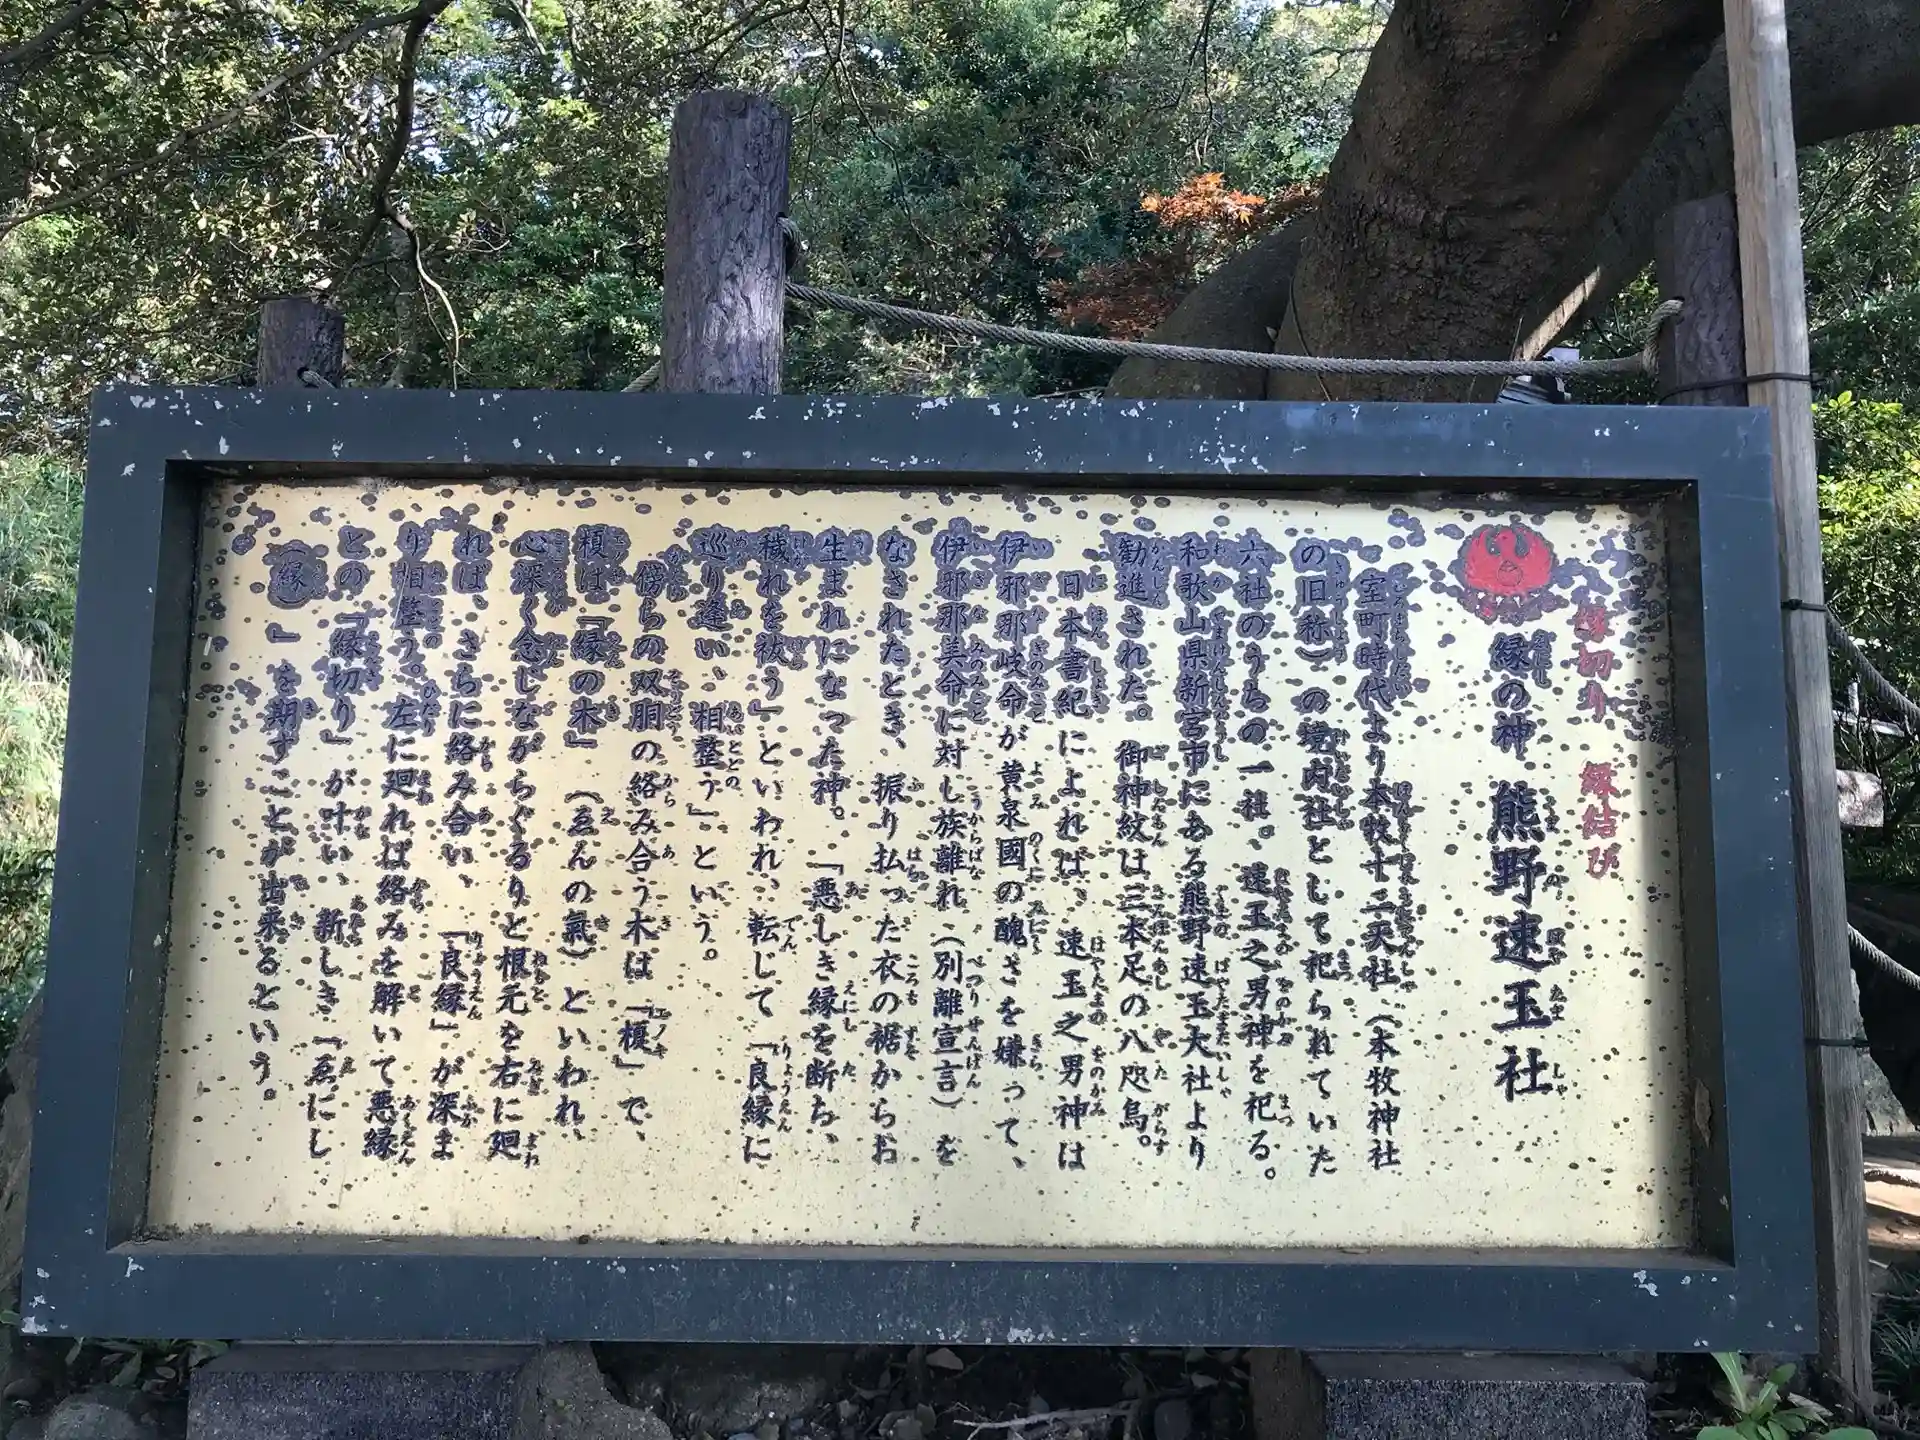 縁切り 縁結び
縁の神 熊野速玉社
室町時代より本牧十二天社(本牧神社
の旧称)の境内社として祀られていた
六社のうちの一社。速玉之男神を祀る。
和歌山県新宮市にある熊野速玉大社より
勧進された。御神紋は三本足の八咫烏。
日本書紀によれば、速玉之男神は
伊邪那岐命が黄泉國の醜さを嫌って、
伊邪那美命に対し族離れ(別離宣言)を
なされたとき、振り払った衣の裾からお
生まれになった神。「悪しき縁を断ち、
穢れを祓う」といわれ、転じて「良縁に
巡り逢い、相整う」という。
傍らの双胴の絡み合う木は「榎」で、
榎は「縁の木」(ゑんの氣)といわれ、
心深く念じながらぐるりと根元を右に廻
れば、さらに絡み合い、「良縁」が深ま
り相整う。左に廻れば絡みを解いて悪縁
との「縁切り」が叶い、新しき「ゑにし
(縁)」を期すことが出来るという。